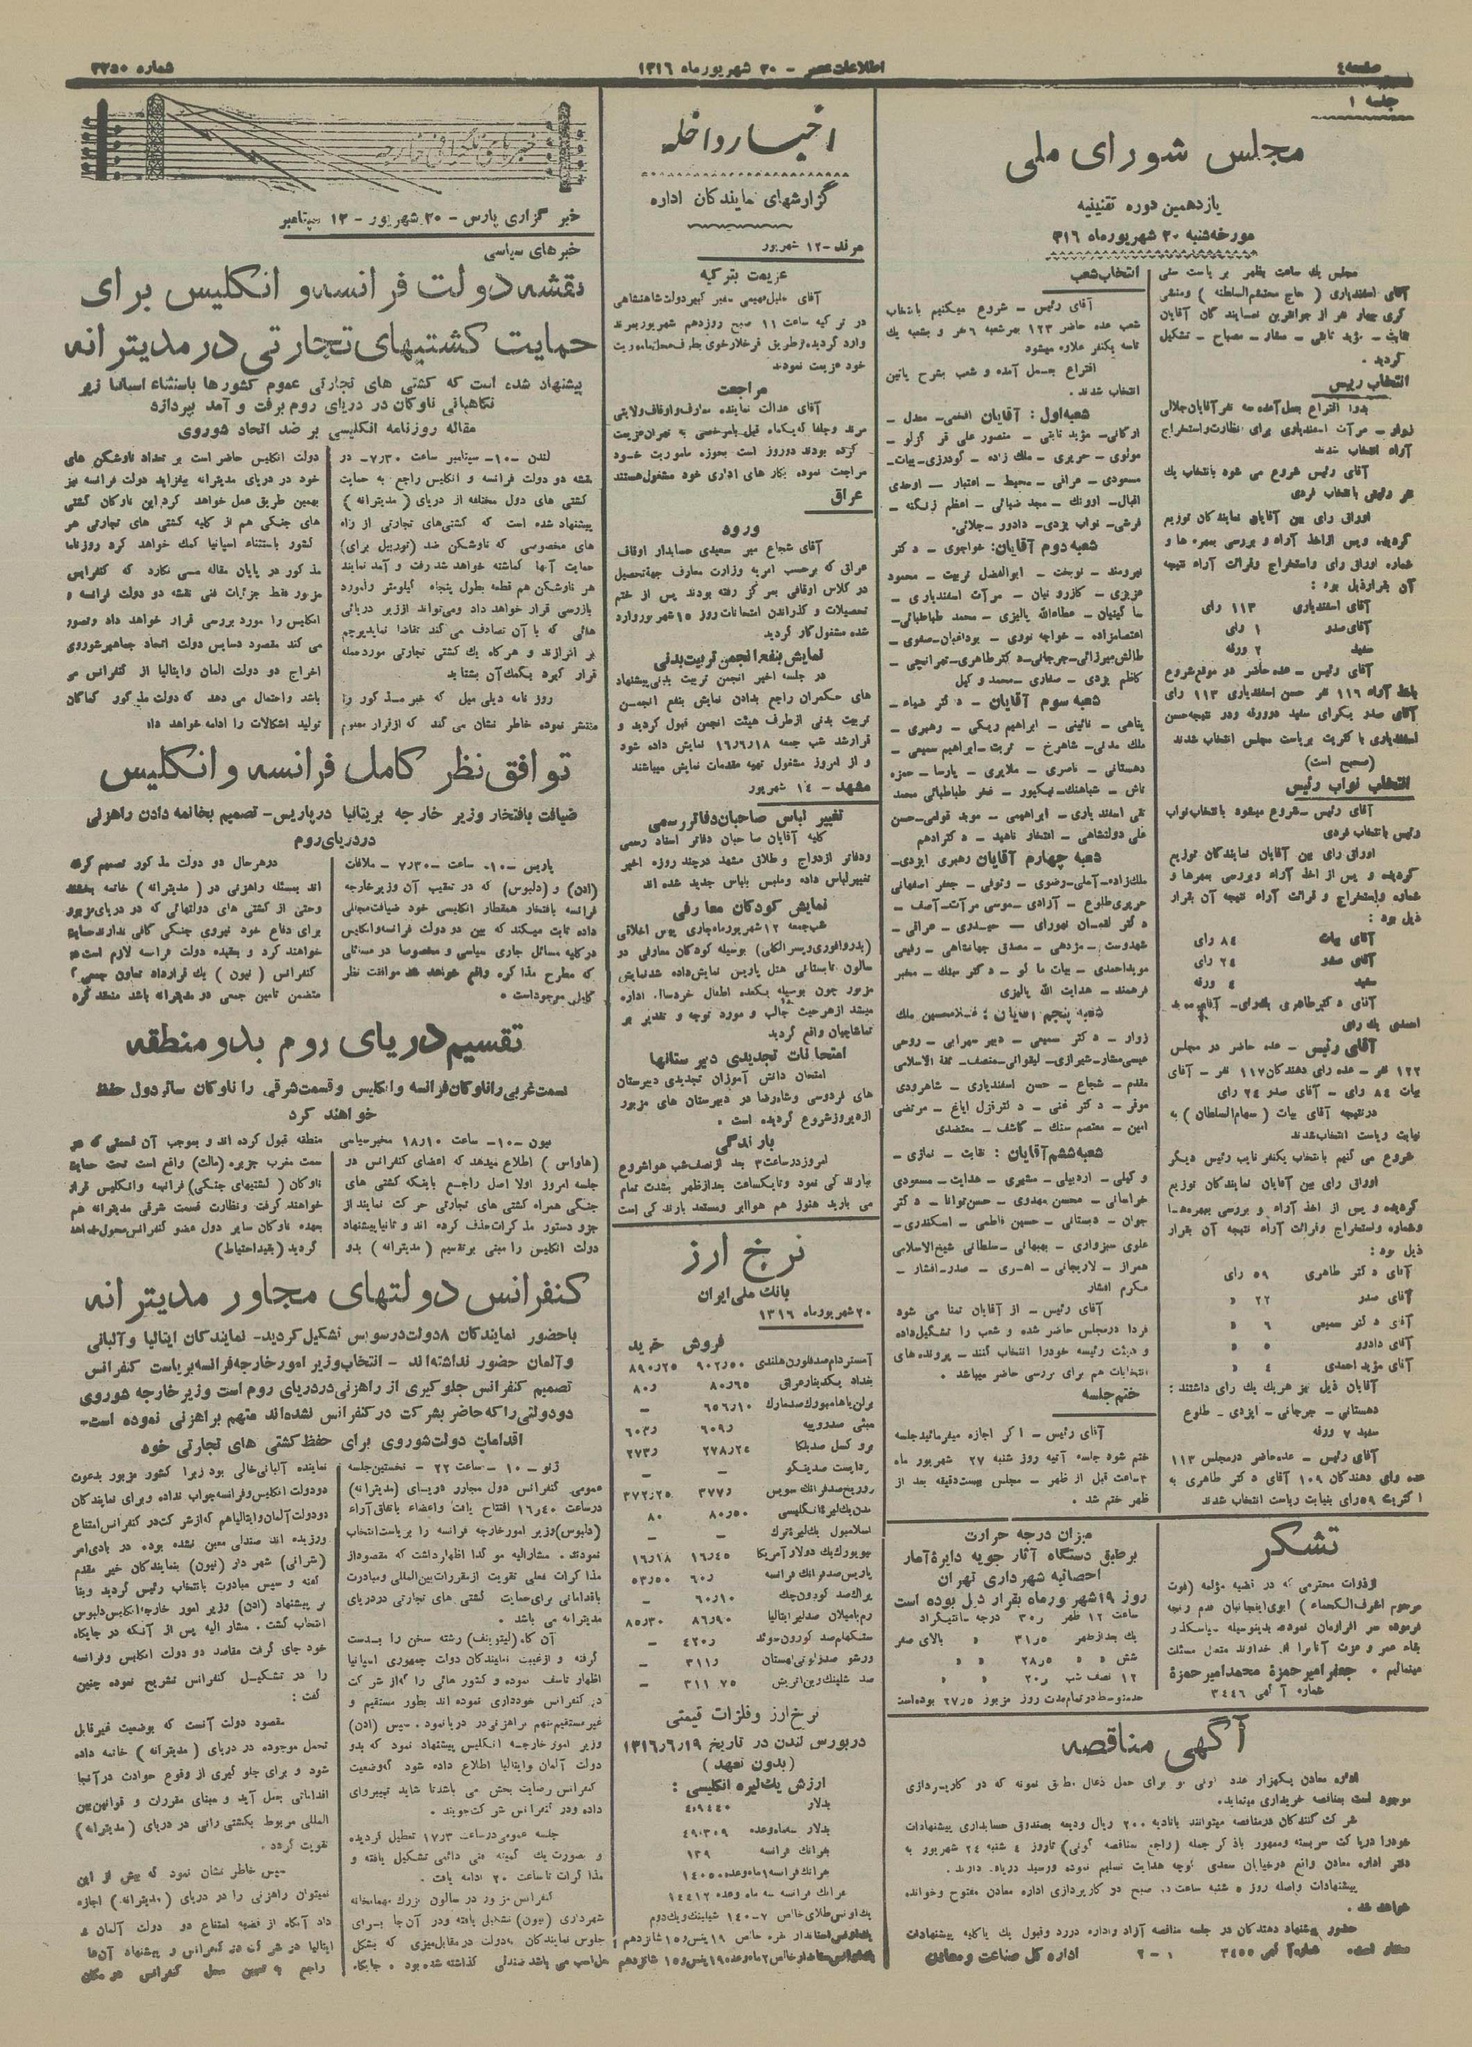 صفحه ٤
اطلاعات عصر – ۲۰ شهریور ماه ۱۳۱٦
شماره ۳۲۵۰
جلسه ۱
مجلس شورای ملی
یازدهمین دوره تقنینیه
مورخه شنبه ۲۰ شهریور ماه ۳۱٦
مجلس یك ساعت بظهر بریاست سنی
آقای اسفندیاری ( حاج محتشم السلطنه ) ومنشی
گری چهار نفر از جوانترین نمایندگان آقایان
نقابت – مؤید ثابتی – صفار – مصباح – تشکیل
گردید .
انتخاب رییس
بدوا اقتراع بعمل آمده سه نفر آقایان جلالی
زوار – مرآت اسفندیاری برای نظارت واستخراج
آراء انتخاب شدند
آقای رئیس شروع می شود بانتخاب یك
نفر رئیس بانتخاب فردی
اوراق رای بین آقایان نمایندگان توزیع
گردیده وپس ازاخذ آراء و بررسی بمهره ها و
شماره اوراق رای واستخراج وقرائت آراء نتیجه
آن بقرارذیل بود :
آقای اسفندیاری ۱۱۳ رای
آقای صدر ۱ رای
سفید ۲ ورقه
آقای رئیس – عده حاضر در موقع شروع
باخذ آراء ۱۱٦ نفر حسن اسفندیاری ۱۱۳ رای
آقای صدر یکرای سفید دوورقه ودر نتیجه حسن
اسفندیاری با کثریت بریاست مجلس انتخاب شدند
(صحیح است)
انتخاب نواب رئیس
آقای رئیس – شروع میشود بانتخاب نواب
رئیس بانتخاب فردی
اوراق رای بین آقایان نمایندگان توزیع
گردیده و پس از اخذ آراء وبررسی بمهرها و
شماره واستخراج و قرائت آراء نتیجه آن بقرار
ذیل بود :
آقای بیات ۸٤ رای
آقای صدر ۲٤ رای
سفید ٤ ورقه
آقای دکتر طاهری یکرای – آقای موید
احمدی یك رای
آقای رئیس – عده حاضر در مجلس
۱۲۲ نفر – عده رای دهندگان ۱۱۷ نفر – آقای
بیات ۸٤ رای – آقای صدر ۲٤ رای
درنتیجه آقای بیات ( سهام السلطان ) به
نیابت ریاست انتخاب شدند
شروع می گنیم بانتخاب یکنفر نایب رئیس دیگر
اوراق رای بین آقایان نمایندگان توزیع
گردیده و پس از اخذ آراء و بررسی بمهرها
وشماره واستخراج وقرائت آراء نتیجه آن بقرار
ذیل بود :
آقای دکتر طاهری ۵۹ رای
آقای صدر ۲۲ »
آقای دکتر سمیعی ٦ »
آقای دادور ۵ »
آقای مؤید احمدی ٤ »
آقایان ذیل نیز هریك یك رای داشتند :
دهستانی – جرجانی – ایزدی – طلوع
سفید ۷ ورقه
آقای رئیس – عده حاضر درمجلس ۱۱۳
عده رای دهندگان ۱۰۹ آقای دکتر طاهری به
اکثریت ۵۹ رای بنیابت ریاست انتخاب شدند
انتخاب شعب
آقای رئیس – شروع میکنیم بانتخاب
شعب عده حاضر ۱۲۳ بهرشعبه ٦ نفر و بشعبه یك
تاسه یکنفر علاوه میشود
اقتراع بعمل آمده و شعب بشرح پائین
انتخاب شدند .
شعبه اول : آقایان افخمی – معدل –
اورگانی – مؤید ثابتی – منصور علی قره گوزلو –
مولوی – حریری – ملك زاده – گودرزی – بیات –
مسعودی – عراقی – محیط – اعتبار – اوحدی
اقبال – اورنك – مجد ضیائی – اعظم زنگنه –
قرشی – نواب یزدی – دادور – جلائی .
شعبه دوم آقایان : خواجوی – دکتر
نیرومند – نوبخت – ابوالفضل تربیت – محمود
عزیزی – کازرونیان – مرآت اسفندیاری –
ساگینیان – عطاءالله پالیزی – محمد طباطبائی –
اعتصام زاده – خواجه نوری – بوداغیان – صفوی –
طالش میرزائی – جرجانی – دکتر طاهری – تهرانچی –
کاظم یزدی – صفاری – محمد وکیل
شعبه سوم آقایان – دکتر ضیاء –
پناهی – نائینی – ابراهیم ریگی – رهبری –
ملك مدنی – شاهرخ – تربت – ابراهیم سمیعی –
دهستانی – ناصری – ملایری – پارسا – حمزه
تاش – شباهنك – نیکپور – فخر طباطبائی محمد
تقی اسفندیاری – ابراهیمی – موید قوامی – حسن
علی دولتشاهی – افتخار ناهید – دکتر ادهم
شعبه چهارم آقایان رهبری ایزدی –
ملك زاده – آملی – رضوی – وثوقی – جعفر اصفهانی
حریری طلوع – آزادی – موسی مرآت – آصف –
دکتر لقمان نهورای – حیدری – عراقی –
شهدوست – مژدهی – مصدق جهانشاهی – رفیعی
مویداحمدی – بیات ماکو – دکتر سنك – مخبر
فرهمند – هدایت الله پالیزی
شعبه پنجم آقایان : غلامحسین ملك
زوار – دکتر سمیعی – دبیر سهرابی – روحی
عیسی مشار – شیرازی – لیقوانی – منصف – ثقة الاسلامی
مقدم – شجاع – حسن اسفندیاری – شاهرودی
موقر – دکتر غنی – دکتر قزل ایاغ – مرتضی
امین – معتصم سنك – کاشف – معتضدی
شعبه ششم آقایان : نقابت – نمازی –
وکیلی – اردبیلی – مشیری – هدایت – مسعودی
خراسانی – محسن مهدوی – حسن نواب – دکتر
جوان – دبستانی – حسین فاطمی – اسکندری –
علوی سبزواری – بهبهانی – سلطانی شیخ الاسلامی
همراز – لاریجانی – اهری – صدر – افشار –
مکرم افشار
آقای رئیس – از آقایان تمنا می شود
فردا درمجلس حاضر شده و شعب را تشکیل داده
و هیئت رئیسه خودرا انتخاب کنند – پرونده های
انتخابات هم برای بررسی حاضر میباشد .
ختم جلسه
آقای رئیس – اگر اجازه میفرمائید جلسه
ختم شود جلسه آتیه روز شنبه ۲۷ شهریور ماه
ساعت قبل از ظهر – مجلس بیست دقیقه بعد از
ظهر ختم شد .
تشکر
ازذوات محترمی که در قضیه مؤلمه (فوت
مرحوم اشرف الحکماء ) ابوی اینجانبان قدم رنجه
فرموده سر افرازمان نموده بدینوسیله سپاسگذار
بقاء عمر و عزت آنانرا از خداوند متعال مسئلت
مینمائیم . جعفر امیرحمزة محمد امیر حمزة
شماره آگهی ۳٤٤٦
میزان درجه حرارت
برطبق دستگاه آثار جویه دایرهٔ آمار
احصائیه شهرداری تهران
روز ۱۹ شهریور ماه بقرار ذیل بوده است
ساعت ۱۲ ظهر ۳۰ر درجه سانتیگراد
یك بعدازظهر ۳۱ر۵ » بالای صفر
شش » » ۲۸ر۵ » »
۱۲ نصف شب ۲۰ر » »
حدمتوسط درتمام مدت روز مزبور ۲۷ر۵ بوده است
آگهی مناقصه
اداره معادن یکهزار عدد گونی نو برای حمل ذغال مطابق نمونه که در کارپردازی
موجود است بمناقصه خریداری مینماید .
شرکت کنندگان درمناقصه میتوانند باتادیه ۲۰۰ ریال ودیعه بصندوق حسابداری پیشنهادات
خودرا درپاکت سربسته وممهور باذکر جمله (راجع بمناقصه گونی) تاروز ٤ شنبه ۲٤ شهریور به
دفتر اداره معادن واقع درخیابان سعدی کوچه هدایت تسلیم نموده ورسید دریافت دارند .
پیشنهادات واصله روز ۵ شنبه ساعت ده صبح در کارپردازی اداره معادن مفتوح وخوانده
خواهد شد .
حضور پیشنهاد دهندگان در جلسه مناقصه آزاد واداره دررد وقبول یك یاکلیه پیشنهادات
مختار است . شماره آگهی ۳٤۵۵ ۱ – ۲ اداره کل صناعت ومعادن
اخبار داخله
گزارشهای نمایندگان اداره
مرند – ۱۲ شهریور
عزیمت بترکیه
آقای خلیل فهیمی سفیر کبیر دولت شاهنشاهی
در ترکیه ساعت ۱۱ صبح روزدهم شهریور بمرند
وارد گردیده ازطریق قرخلار خوی بطرف محل ماموریت
خود عزیمت نمودند
مراجعت
آقای عدالت نماینده معارف واوقاف ولایتی
مرند وجلفا که یکماه قبل بامرخصی به تهران عزیمت
کرده بودند دوروز است بحوزه ماموریت خود
مراجعت نموده بکار های اداری خود مشغول هستند
عراق
ورود
آقای شجاع میر سعیدی حسابدار اوقاف
عراق که برحسب امریه وزارت معارف جهة تحصیل
در کلاس اوقافی بمرکز رفته بودند پس از ختم
تحصیلات و گذراندن امتحانات روز ۱۵ شهریور وارد
شده مشغول کار گردید
نمایش بنفع انجمن تربیت بدنی
در جلسه اخیر انجمن تربیت بدنی پیشنهاد
های حکمران راجع بدادن نمایش بنفع انجمن
تربیت بدنی ازطرف هیئت انجمن قبول گردید و
قرارشد شب جمعه ۱٦٫٦٫۱۸ نمایش داده شود
و از امروز مشغول تهیه مقدمات نمایش میباشند
مشهد – ۱٤ شهریور
تغییر لباس صاحبان دفاتر رسمی
کلیه آقایان صاحبان دفاتر اسناد رسمی
ودفاتر ازدواج و طلاق مشهد درچند روزه اخیر
تغییر لباس داده وملبس بلباس جدید شده اند
نمایش کودکان معارفی
شب جمعه ۱۲ شهریور ماه جاری پیس اخلاقی
(پدر وافوری وپسر الکلی) بوسیله کودکان معارفی در
سالون تابستانی هتل پاریس نمایش داده شد نمایش
مزبور چون بوسیله یکعده اطفال خردسال اداره
میشد ازهر حیث جالب و مورد توجه و تقدیر
تماشاچیان واقع گردید
امتحانات تجدیدی دبیرستانها
امتحان دانش آموزان تجدیدی دبیرستان
های فردوسی وشاهرضا در دبیرستان های مزبور
ازدیروز شروع گردیده است .
بارندگی
امروز درساعت ۳ بعد ازنصف شب هوا شروع
ببارندگی نمود وتایکساعت بعدازظهر بشدت تمام
می بارید هنوز هم هوا ابر ومستعد بارندگی است
نرخ ارز
بانك ملی ایران
۲۰ شهریور ماه ۱۳۱٦
فروش خرید
آمستردام صد فلورن هلندی ۹۰۲ر۵۰ ۸۹۰ر۲۵
بغداد یکدینار عراق ۸۰ر٦۵ ۸۰ر
برلن یاهامبورك صدمارك ٦۵٦ر۱۰ –
بمبئی صد روپیه ٦۰۹ر ٦۰۳ر
بروکسل صد بلگا ۲۷۸ر۲٤ ۲۷۳ر
بوداپست صد پنگو – –
زوریخ صد فرانك سویس ۳۷۷ر ۳۷۲ر۲۵
لندن یك لیرهٔ انگلیسی ۸۰ر۵۰ ۸۰
اسلامبول یك لیره ترك – –
نیویورك یك دولار آمریکا ۱٦ر٤۵ ۱٦ر۱۸
پاریس صد فرانك فرانسه ٦۰ر ۵۳ر۵۰
پراك صد کورون چك ٦۰ر۱۰ –
رم یامیلان صد لیر ایتالیا ۸٦ر۹۰ ۸۵ر۳۰
ستکهلم صد کورون سوئد ٤۲۰ر –
ورشو صد زلوتی لهستان ۳۱۱ر –
صد شلینك وین اتریش ۳۱۱ر۷۵ –
نرخ ارز وفلزات قیمتی
دربورس لندن در تاریخ ۱۳۱٦٫٦٫۱۹
( بدون تعهد )
ارزش یك لیره انگلیسی :
بدلار ٤٫۹٤٤۰
بدلار سه ماه وعده ٤٫۹۰۳۰۹
بفرانك فرانسه ۱۳۹
بفرانك فرانسه ۱ ماه وعده ۱٤۰۵۰
بفرانك فرانسه سه ماه وعده ۱٤٤۱۲
یك اونس طلای خالص ۷–۱٤۰ شیلینك ویك دوم
خبرهای تلگرافی خارجه
خبر گزاری پارس – ۲۰ شهریور – ۱۲ سپتامبر
خبرهای سیاسی
نقشه دولت فرانسه و انگلیس برای
حمایت کشتیهای تجارتی در مدیترانه
پیشنهاد شده است که کشتی های تجارتی عموم کشورها باستثناء اسپانیا زیر
نگاهبانی ناوگان در دریای روم برفت و آمد بپردازد
مقاله روزنامه انگلیسی بر ضد اتحاد شوروی
لندن – ۱۰ – سپتامبر ساعت ۷٫۳۰ – در
نقشه دو دولت فرانسه و انگلیس راجع به حمایت
کشتی های دول مختلفه از دریای ( مدیترانه )
پیشنهاد شده است که کشتی های تجارتی از راه
های مخصوصی که ناوشکن ضد (تورپیل برای)
حمایت آنها گماشته خواهد شد رفت و آمد نمایند
هر ناوشکن هم قطعه بطول پنجاه کیلومتر رامورد
بازرسی قرار خواهد داد ومی تواند اززیر دریائی
هائی که با آن تصادف می کند تقاضا نماید پرچم
بر افرازند و هرگاه یك کشتی تجارتی مورد حمله
قرار گیرد بکمك آن بشتابد
روز نامه دیلی میل که خبر مذکور را
منتشر نموده خاطر نشان می کند که از قرار معلوم
دولت انگلیس حاضر است بر تعداد ناوشکن های
خود در دریای مدیترانه بیفزاید دولت فرانسه نیز
بهمین طریق عمل خواهد کرد این ناوگان کشتی
های جنگی هم از کلیه کشتی های تجارتی هر
کشور باستثناء اسپانیا کمك خواهد کرد روزنامه
مذکور در پایان مقاله می نگارد که کنفرانس
مزبور فقط جزئیات فنی نقشه دو دولت فرانسه و
انگلیس را مورد بررسی قرار خواهد داد وتصور
می کند مقصود دسایس دولت اتحاد جماهیر شوروی
اخراج دو دولت المان وایتالیا از کنفرانس می
باشد واحتمال می دهد که دولت مذکور کماکان
تولید اشکالات را ادامه خواهد داد
توافق نظر کامل فرانسه و انگلیس
ضیافت بافتخار وزیر خارجه بریتانیا در پاریس – تصمیم بخاتمه دادن راهزنی
دردریای روم
پاریس – ۱۰ . ساعت ۷٫۳۰ – ملاقات
(ادن) و (دلبوس) که در تعقیب آن وزیر خارجه
فرانسه بافتخار همقطار انگلیسی خود ضیافت مجللی
داده ثابت میکند که بین دو دولت فرانسه وانگلیس
در کلیه مسائل جاری سیاسی و مخصوصا در مسائلی
که مطرح مذاکره واقع خواهد شد موافقت نظر
کامل موجود است .
درهرحال دو دولت مذکور تصمیم گرفته
اند بمسئله راهزنی در ( مدیترانه ) خاتمه بخشند
وحتی از کشتی های دولتهائی که در دریای مزبور
برای دفاع خود نیروی جنگی کافی ندارند حمایت
خواهند کرد و بعقیده دولت فرانسه لازم است در
کنفرانس ( نیون ) یك قرارداد تعاون جمعی که
متضمن تامین جمعی در مدیترانه باشد منعقد گردد
تقسیم دریای روم بدو منطقه
قسمت غربی را ناوگان فرانسه و انگلیس و قسمت شرقی را ناوگان سائر دول حفظ
خواهند کرد
نیون – ۱۰ – ساعت ۱۸٫۱۰ مخبر سیاسی
(هاواس ) اطلاع میدهد که اعضای کنفرانس در
جلسه امروز اولا اصل راجع باینکه کشتی های
جنگی همراه کشتی های تجارتی حرکت نمایند از
جزو دستور مذاکرات حذف کرده اند و ثانیا پیشنهاد
دولت انگلیس را مبنی برتقسیم ( مدیترانه ) بدو
منطقه قبول کرده اند و بموجب آن قسمتی که در
سمت مغرب جزیره (مالت) واقع است تحت حمایت
ناوگان ( کشتیهای جنگی ) فرانسه وانگلیس قرار
خواهند گرفت ونظارت قسمت شرقی مدیترانه هم
بعهده ناوگان سایر دول عضو کنفرانس محول خواهد
گردید (بقید احتیاط)
کنفرانس دولتهای مجاور مدیترانه
باحضور نمایندگان ۸ دولت در سویس تشکیل گردید – نمایندگان ایتالیا و آلبانی
و آلمان حضور نداشته اند – انتخاب وزیر امور خارجه فرانسه بریاست کنفرانس
تصمیم کنفرانس جلوگیری از راهزنی دردریای روم است وزیر خارجه شوروی
دو دولتی را که حاضر بشرکت در کنفرانس نشده اند متهم براهزنی نموده است –
اقدامات دولت شوروی برای حفظ کشتی های تجارتی خود
ژنو – ۱۰ – ساعت ۲۲ – نخستین جلسه
عمومی کنفرانس دول مجاور دریای (مدیترانه)
درساعت ۱٦٫٤۰ افتتاح یافت واعضاء باتفاق آراء
(دلبوس) وزیر امور خارجه فرانسه را بریاست انتخاب
نمودند . مشارالیه مؤکدا اظهار داشت که مقصود از
مذاکرات فعلی تقویت ازمقررات بین المللی ومبادرت
باقداماتی برای حمایت کشتی های تجارتی دردریای
مدیترانه می باشد .
آن گاه (لیتوینف) رشته سخن را بدست
گرفته و ازغیبت نمایندگان دولت جمهوری اسپانیا
اظهار تاسف نموده و کشور هائی را که از شرکت
در کنفرانس خودداری نموده اند بطور مستقیم و
غیر مستقیم متهم براهزنی در دریا نمود . سپس (ادن)
وزیر امور خارجه انگلیس پیشنهاد نمود که بدو
دولت آلمان وایتالیا اطلاع داده شود که وضعیت
کنفرانس رضایت بخش می باشد تا شاید تغییر رای
داده ودر کنفرانس شرکت جویند .
جلسه عمومی درساعت ۱۷٫۳ تعطیل گردیده
و بصورت یك کمیته فنی دائمی تشکیل یافته و
مذاکرات تاساعت ۲۰ ادامه یافت .
کنفرانس مزبور در سالون بزرك مهمانخانه
شهرداری (نیون) تشکیل یافته ودر آن جا برای
جلوس نمایندگان ۹ دولت در مقابل میزی که بشکل
نعل اسب می باشد صندلی گذاشته شده بود . جایگاه
نماینده آلبانی خالی بود زیرا کشور مزبور بدعوت
دو دولت انگلیس وفرانسه جواب نداده وبرای نمایندگان
دو دولت آلمان وایتالیا هم که از شرکت در کنفرانس امتناع
ورزیده اند صندلی معین نشده بوده در بادی امر
(شرانی) شهر دار (نیون) بنمایندگان خیر مقدم
گفته و سپس مبادرت بانتخاب رئیس گردید وبنا
بر پیشنهاد (ادن) وزیر امور خارجه انگلیس دلبوس
انتخاب گشت . مشار الیه پس از آنکه در جایگاه
خود جای گرفت مقاصد دو دولت انگلیس وفرانسه
را در تشکیل کنفرانس تشریح نموده چنین
گفت :
مقصود دولت آنست که بوضعیت غیر قابل
تحمل موجوده در دریای ( مدیترانه ) خاتمه داده
شود و برای جلوگیری از وقوع حوادث در آنجا
اقداماتی بعمل آید و مبنای مقررات و قوانین بین
المللی مربوط بکشتی رانی در دریای ( مدیترانه )
تقویت گردد .
سپس خاطر نشان نمود که بیش از این
نمیتوان راهزنی را در دریای ( مدیترانه ) اجازه
داد آنگاه از قضیه امتناع دو دولت آلمان و
ایتالیا در شرکت در کنفرانس و پیشنهاد آن ها
راجع به تعیین محل کنفرانس